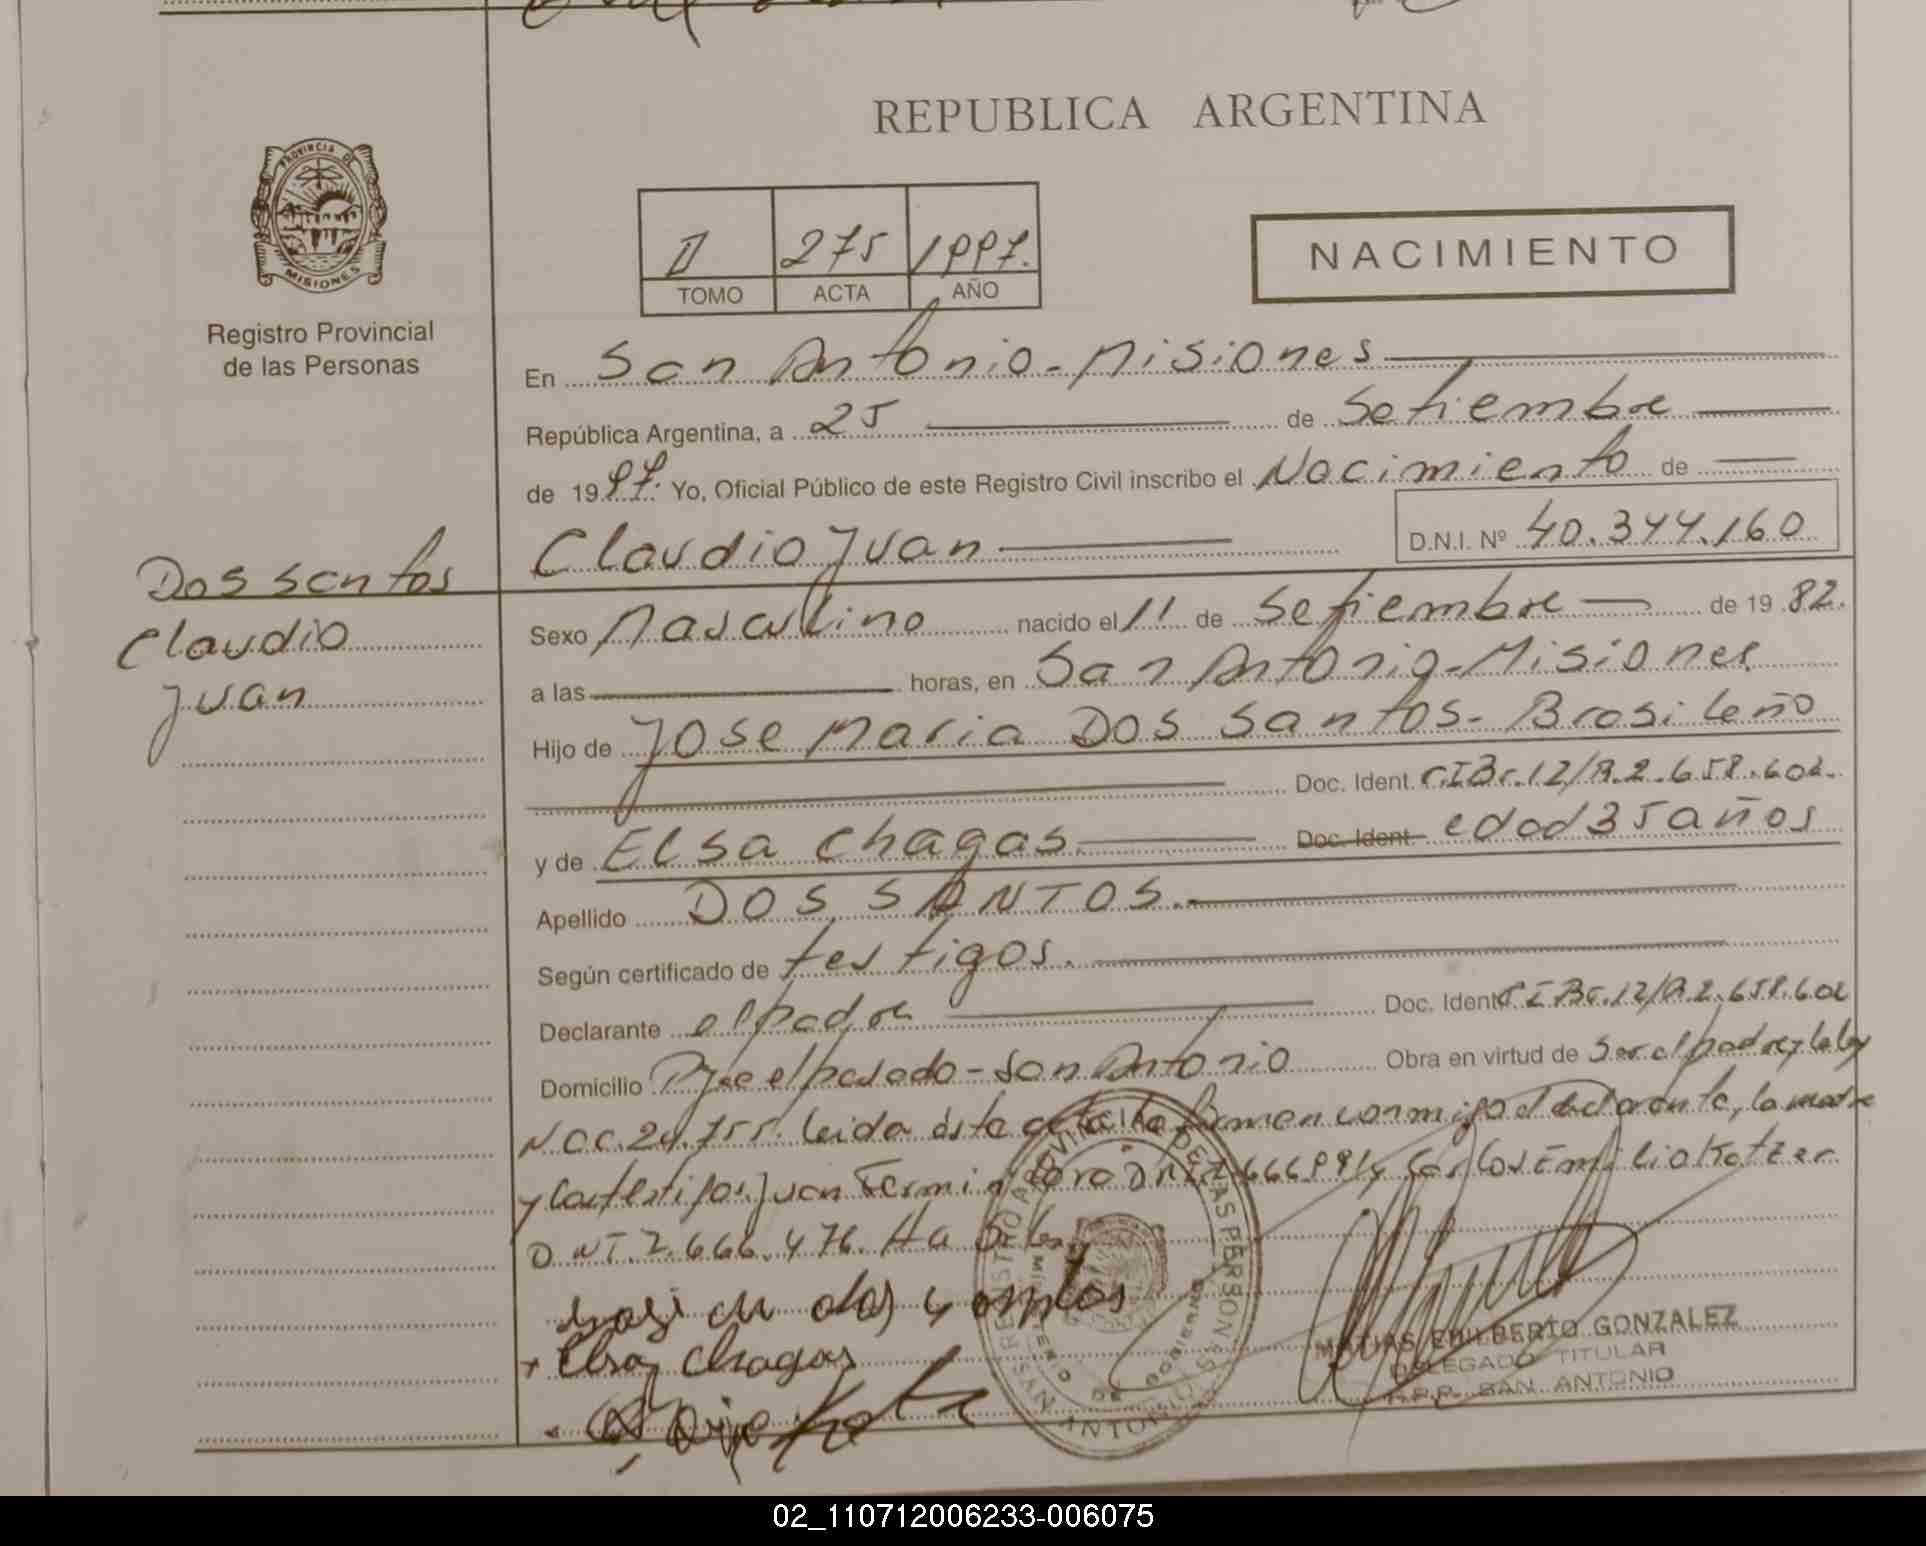 REPUBLICA ARGENTINA
PROVINCIA DE
MISIONES
Registro Provincial
de las Personas
II 275 1997.
TOMO ACTA AÑO
NACIMIENTO
En San Antonio - Misiones
República Argentina, a 25 de Setiembre
de 1997. Yo, Oficial Público de este Registro Civil inscribo el Nacimiento de
Claudio Juan D.N.I. Nº 40.344.160
Dos santos
Claudio
Juan
Sexo Masculino nacido el 11 de Setiembre de 1982.
a las horas, en San Antonio - Misiones
Hijo de Jose Maria Dos Santos - Brasileño
Doc. Ident. C.I.Br.12/R.2.658.602.
y de Elsa Chagas. Doc. Ident. edad 35 años
Apellido DOS SANTOS.
Según certificado de testigos.
Declarante el padre Doc. Ident. C.I.Br.12/R.2.658.602
Domicilio el posado - San Antonio Obra en virtud de Ser el padre y la ley
N.CC.24.755. leida ésta acta la firman conmigo el declarante, la madre
y los testigos Juan Fermin DNI 7.666.991 y Carlos Emilio Katzer
D.N.I. 7.666.476.
jose dos santos
+ Elsa Chagas
REGISTRO PROVINCIAL DE LAS PERSONAS
MINISTERIO DE GOBIERNO
SAN ANTONIO
MATIAS EDILBERTO GONZALEZ
DELEGADO TITULAR
R.P.P. SAN ANTONIO
02_110712006233-006075